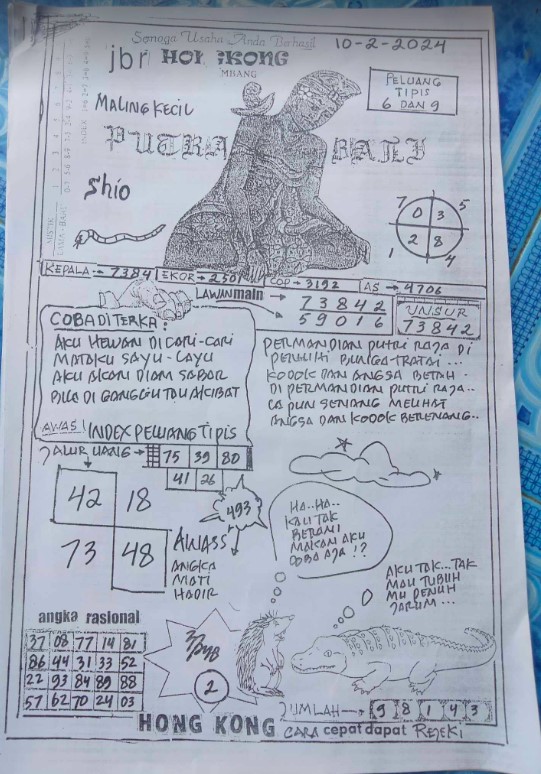 Semoga Usaha Anda Berhasil
10-2-2024
jbr HONGKONG
MBANG
PELUANG
TIPIS
6 DAN 9
MALING KECIL
PUTRA BALI
Shio
7 0 3 5
1 2 8 4
KEPALA → 7384 EKOR → 2501 COP → 3192 AS → 4706
LAWAN main → 73842
59016
UNSUR
73842
COBA DITERKA:
AKU HEWAN DI CARI-CARI
MATAKU SAYU-LAYU
AKU AKAN DIAM SABAR
BILA DI GANGGU TAU AKIBAT
PERMANDIAN PUTRI RAJA DI
PENUHI BUNGA-TRATAI...
KODOK DAN ANGSA BETAH.
DI PERMANDIAN PUTRI RAJA..
CA PUN SENANG MELIHAT
ANGSA DAN KODOK BERENANG..
AWAS! INDEX PELUANG TIPIS
JALUR UANG → 75 39 80
41 26
42 18
73 48
493
AWASS
ANGKA
MATI
HADIR
HA..HA..
KAU TAK
BERANI
MAKAN AKU
COBA AJA !?
AKU TAK...TAK
MAU TUBUH
MU PENUH
JARUM...
angka rasional
37 08 77 14 81
86 44 31 33 52
22 93 84 89 88
57 62 70 24 03
2
JUMLAH → 9 8 1 4 3
HONG KONG CARA cepat dapat REJEKI